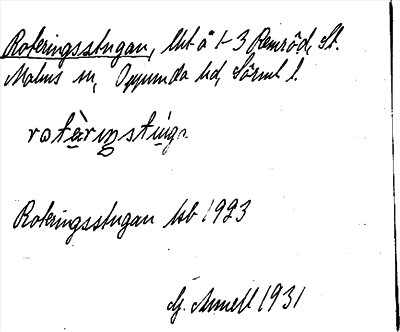 Roteringsstugan, lht å 1-3 Remröd, St.
Malms sn, Oppunda hd, Sörml l.
rotèriŋstùga
Roteringsstugan hsb 1923
G. Annell 1931